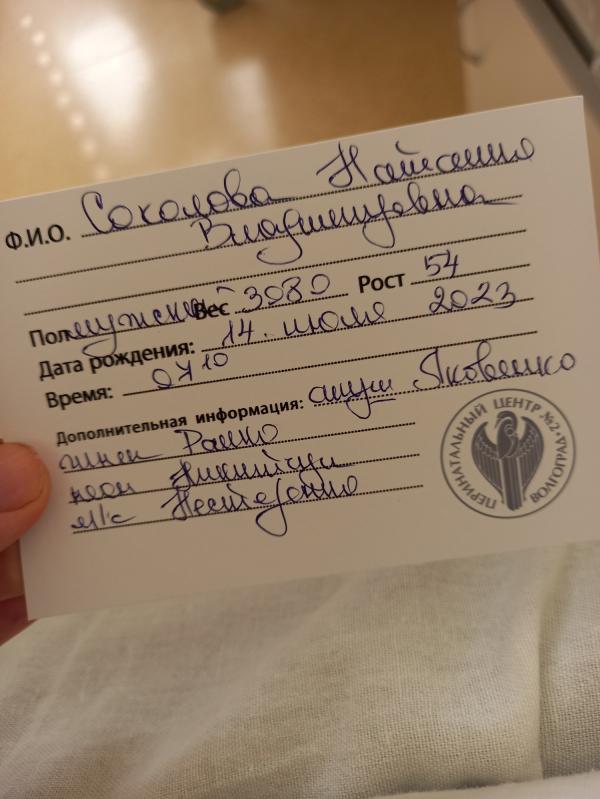 Ф.И.О. Соколова Наталия
Владимировна
Пол мужской Вес 3080 Рост 54
Дата рождения: 14 июля 2023
Время: 0710
Дополнительная информация: акуш Яковенко
гинек
неон
м/с Нестеренко
ПЕРИНАТАЛЬНЫЙ ЦЕНТР №2 • ВОЛГОГРАД •